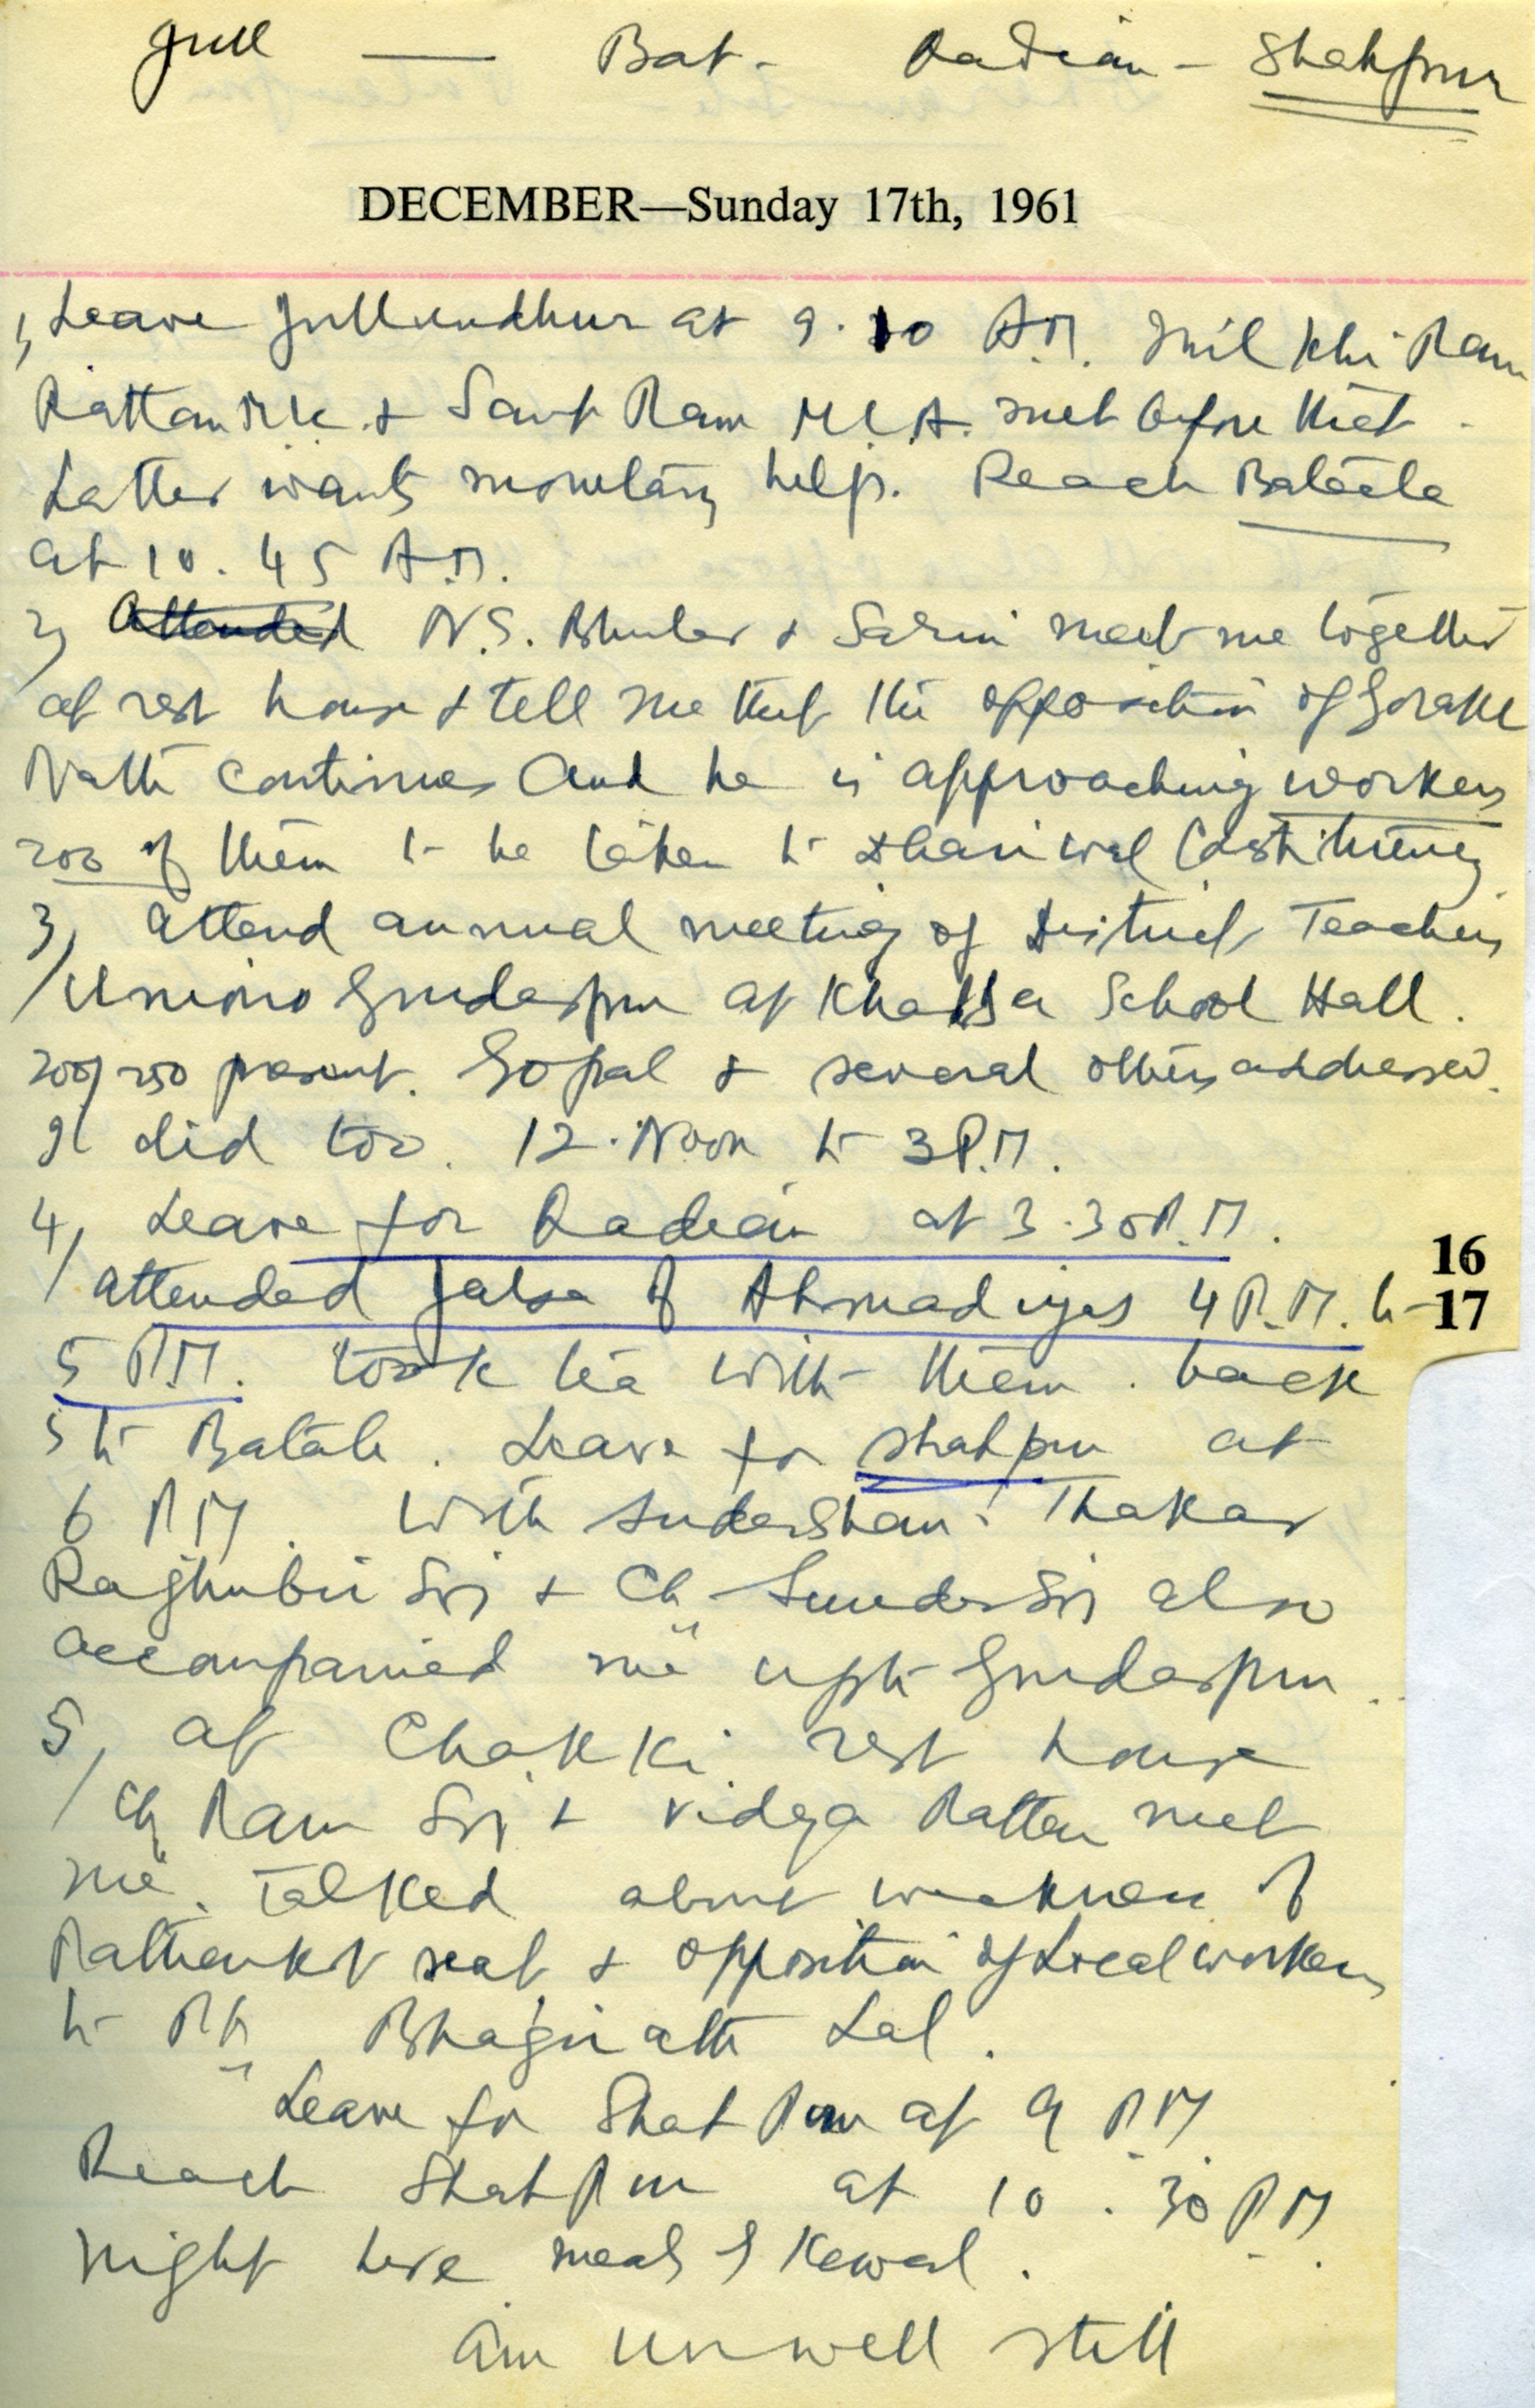 Jull — Bat - Qadian - Shahpur
DECEMBER—Sunday 17th, 1961
1, Leave Jullundhur at 9.10 A.M. Milkhi Ram
Rattan & Sant Ram M.L.A. met before that.
Latter wants monetary help. Reach Batala
at 10.45 A.M.
2, Attended N.S. & Sarin meet me together
at rest house & tell me that the opposition of Gorakh
Nath continues and he is approaching workers
200 of them to be taken to Dhariwal Constituency
3, Attend annual meeting of District Teachers
Union Gurdaspur at Khalsa School Hall.
200/250 present. Gopal & several others addressed.
I did too. 12.Noon to 3 P.M.
4, Leave for Qadian at 3.30 P.M.
attended Jalsa of Ahmadiyas 4 P.M. to
16
17
5 P.M. took tea with them. back
to Batala. Leave for Shahpur at
6 P.M. with Sudershan. Thakar
Raghubir Singh & Ch Sunder Singh also
accompanied me upto Gurdaspur.
5, at Chakki rest house
Ch Ram Singh & Vidya Rattan met
me. Talked about weakness of
Pathankot seat & opposition of Local workers
to Pt. Bhagirath Lal.
Leave for Shahpur at 9 P.M.
Reach Shahpur at 10.30 P.M.
Night here meals of Kewal.
am unwell still